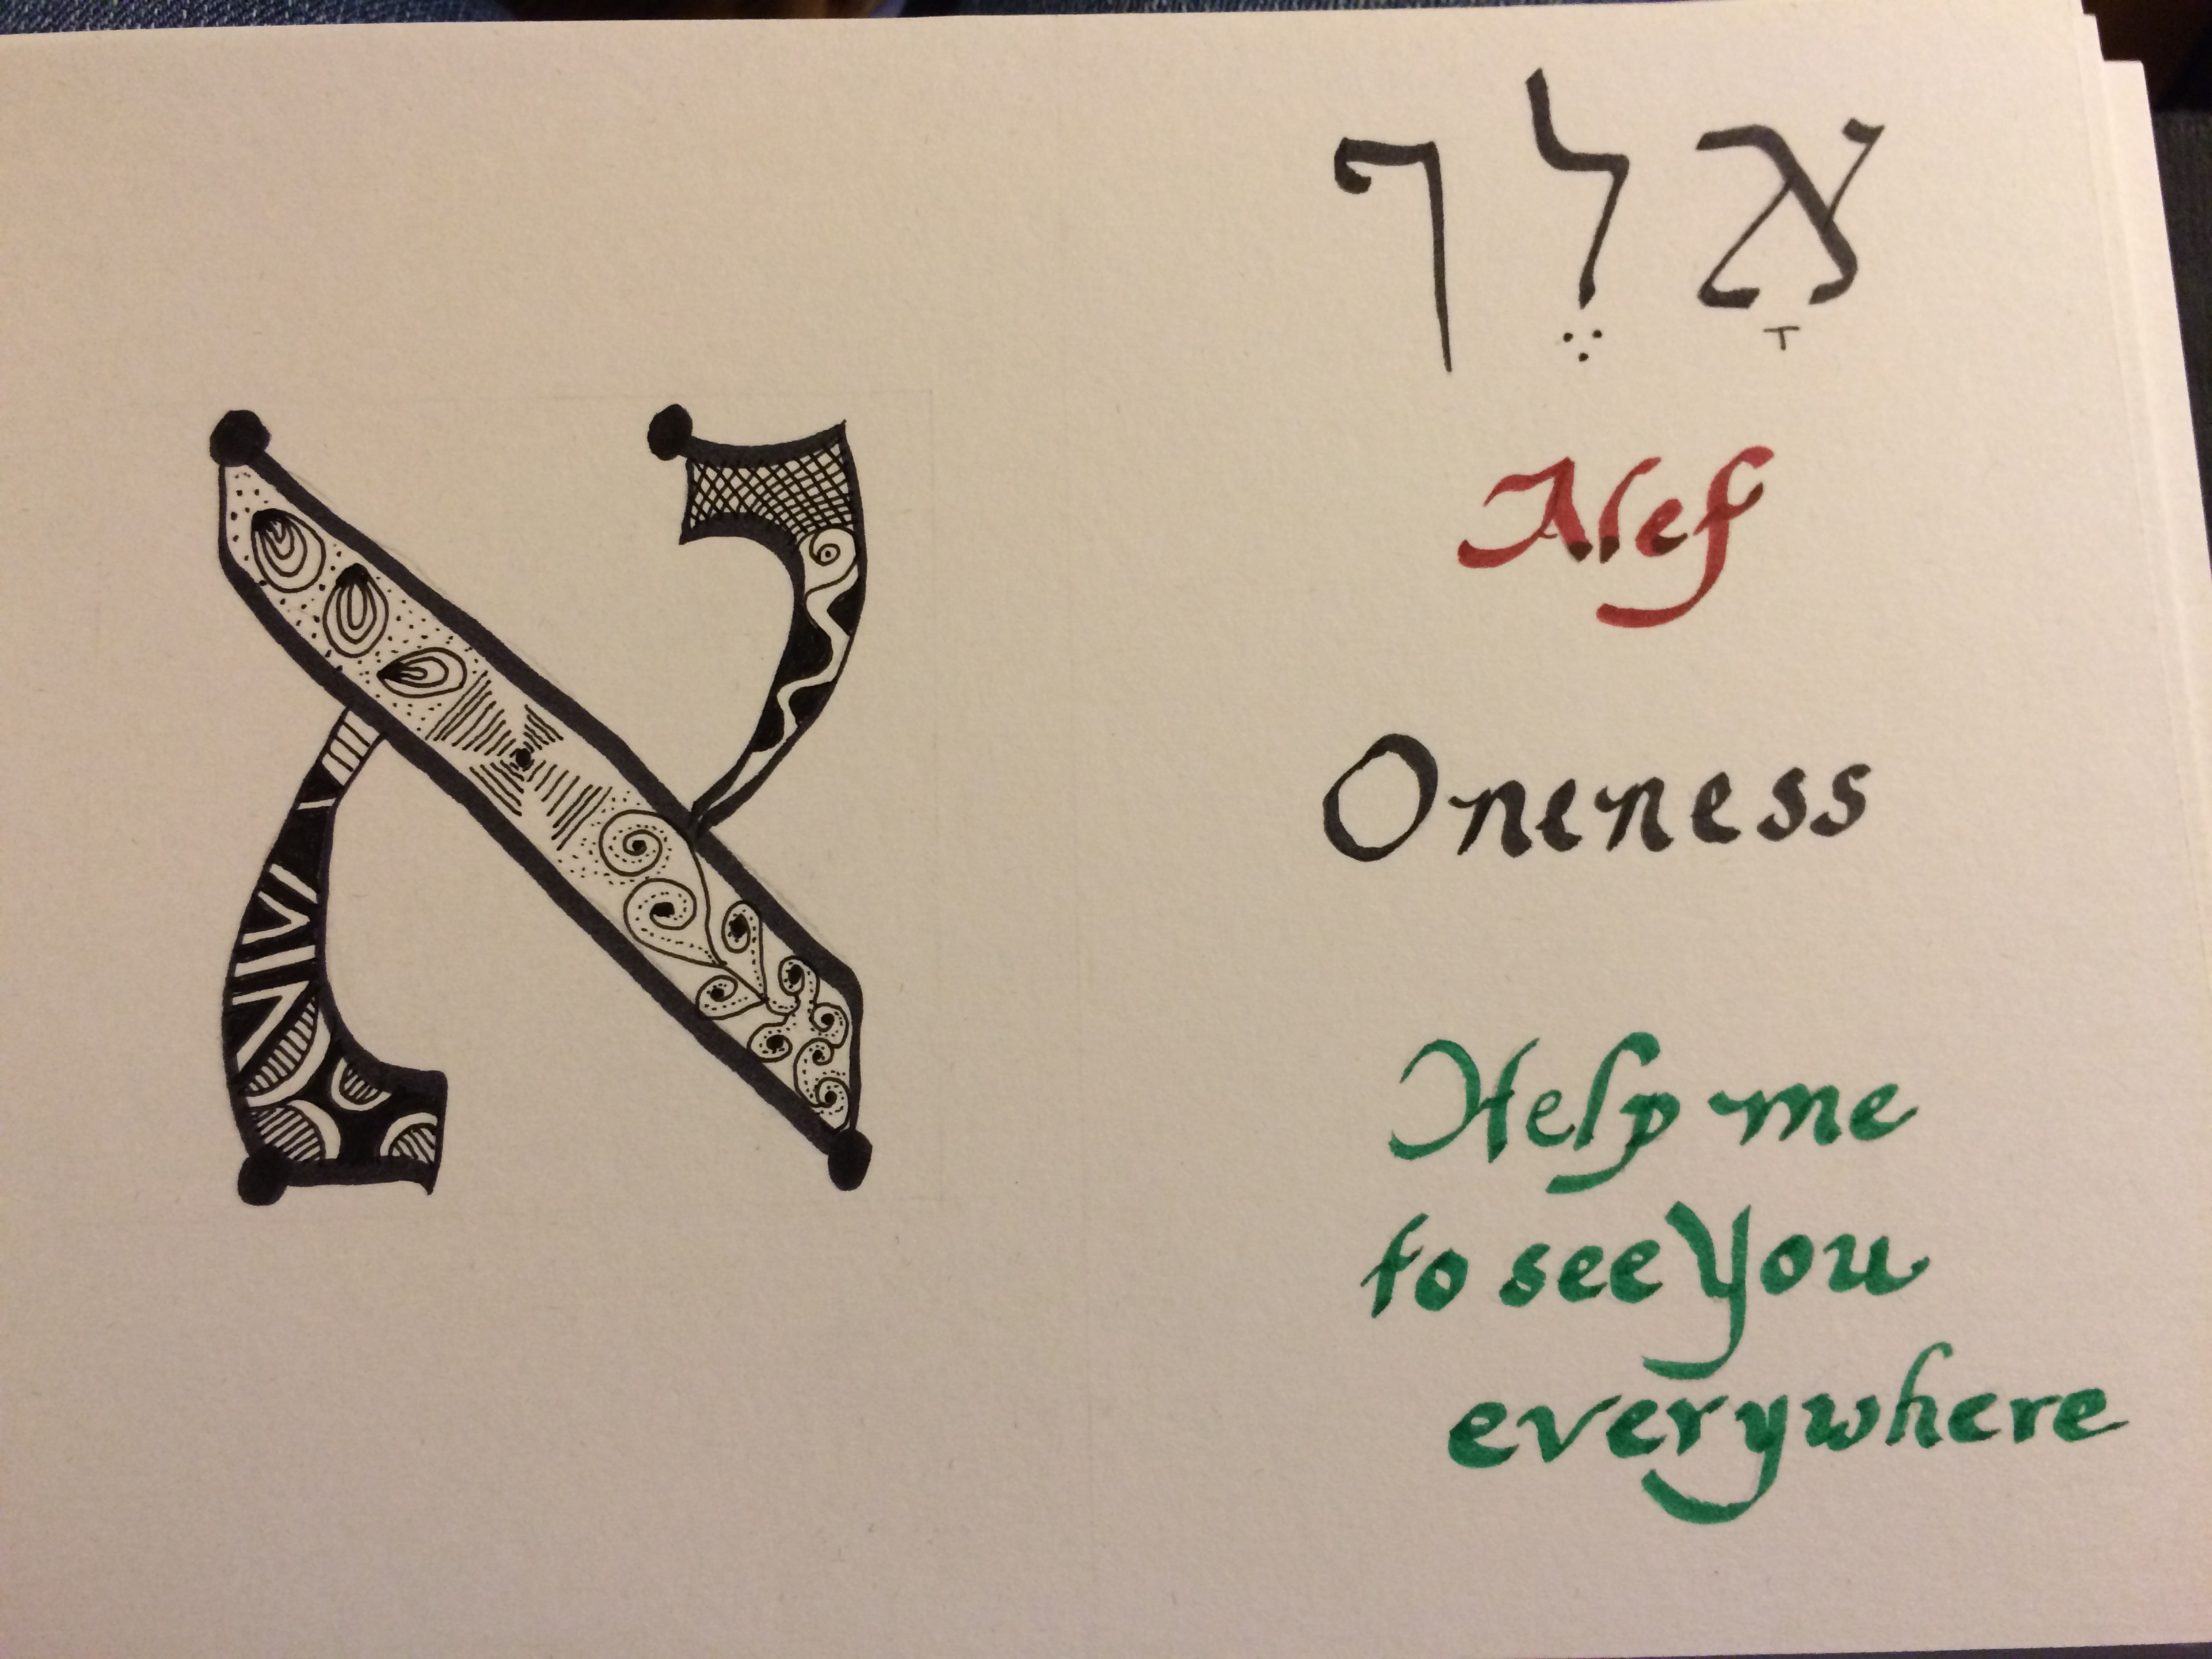 א
אָלֶף
Alef
Oneness
Help me
to see You
everywhere